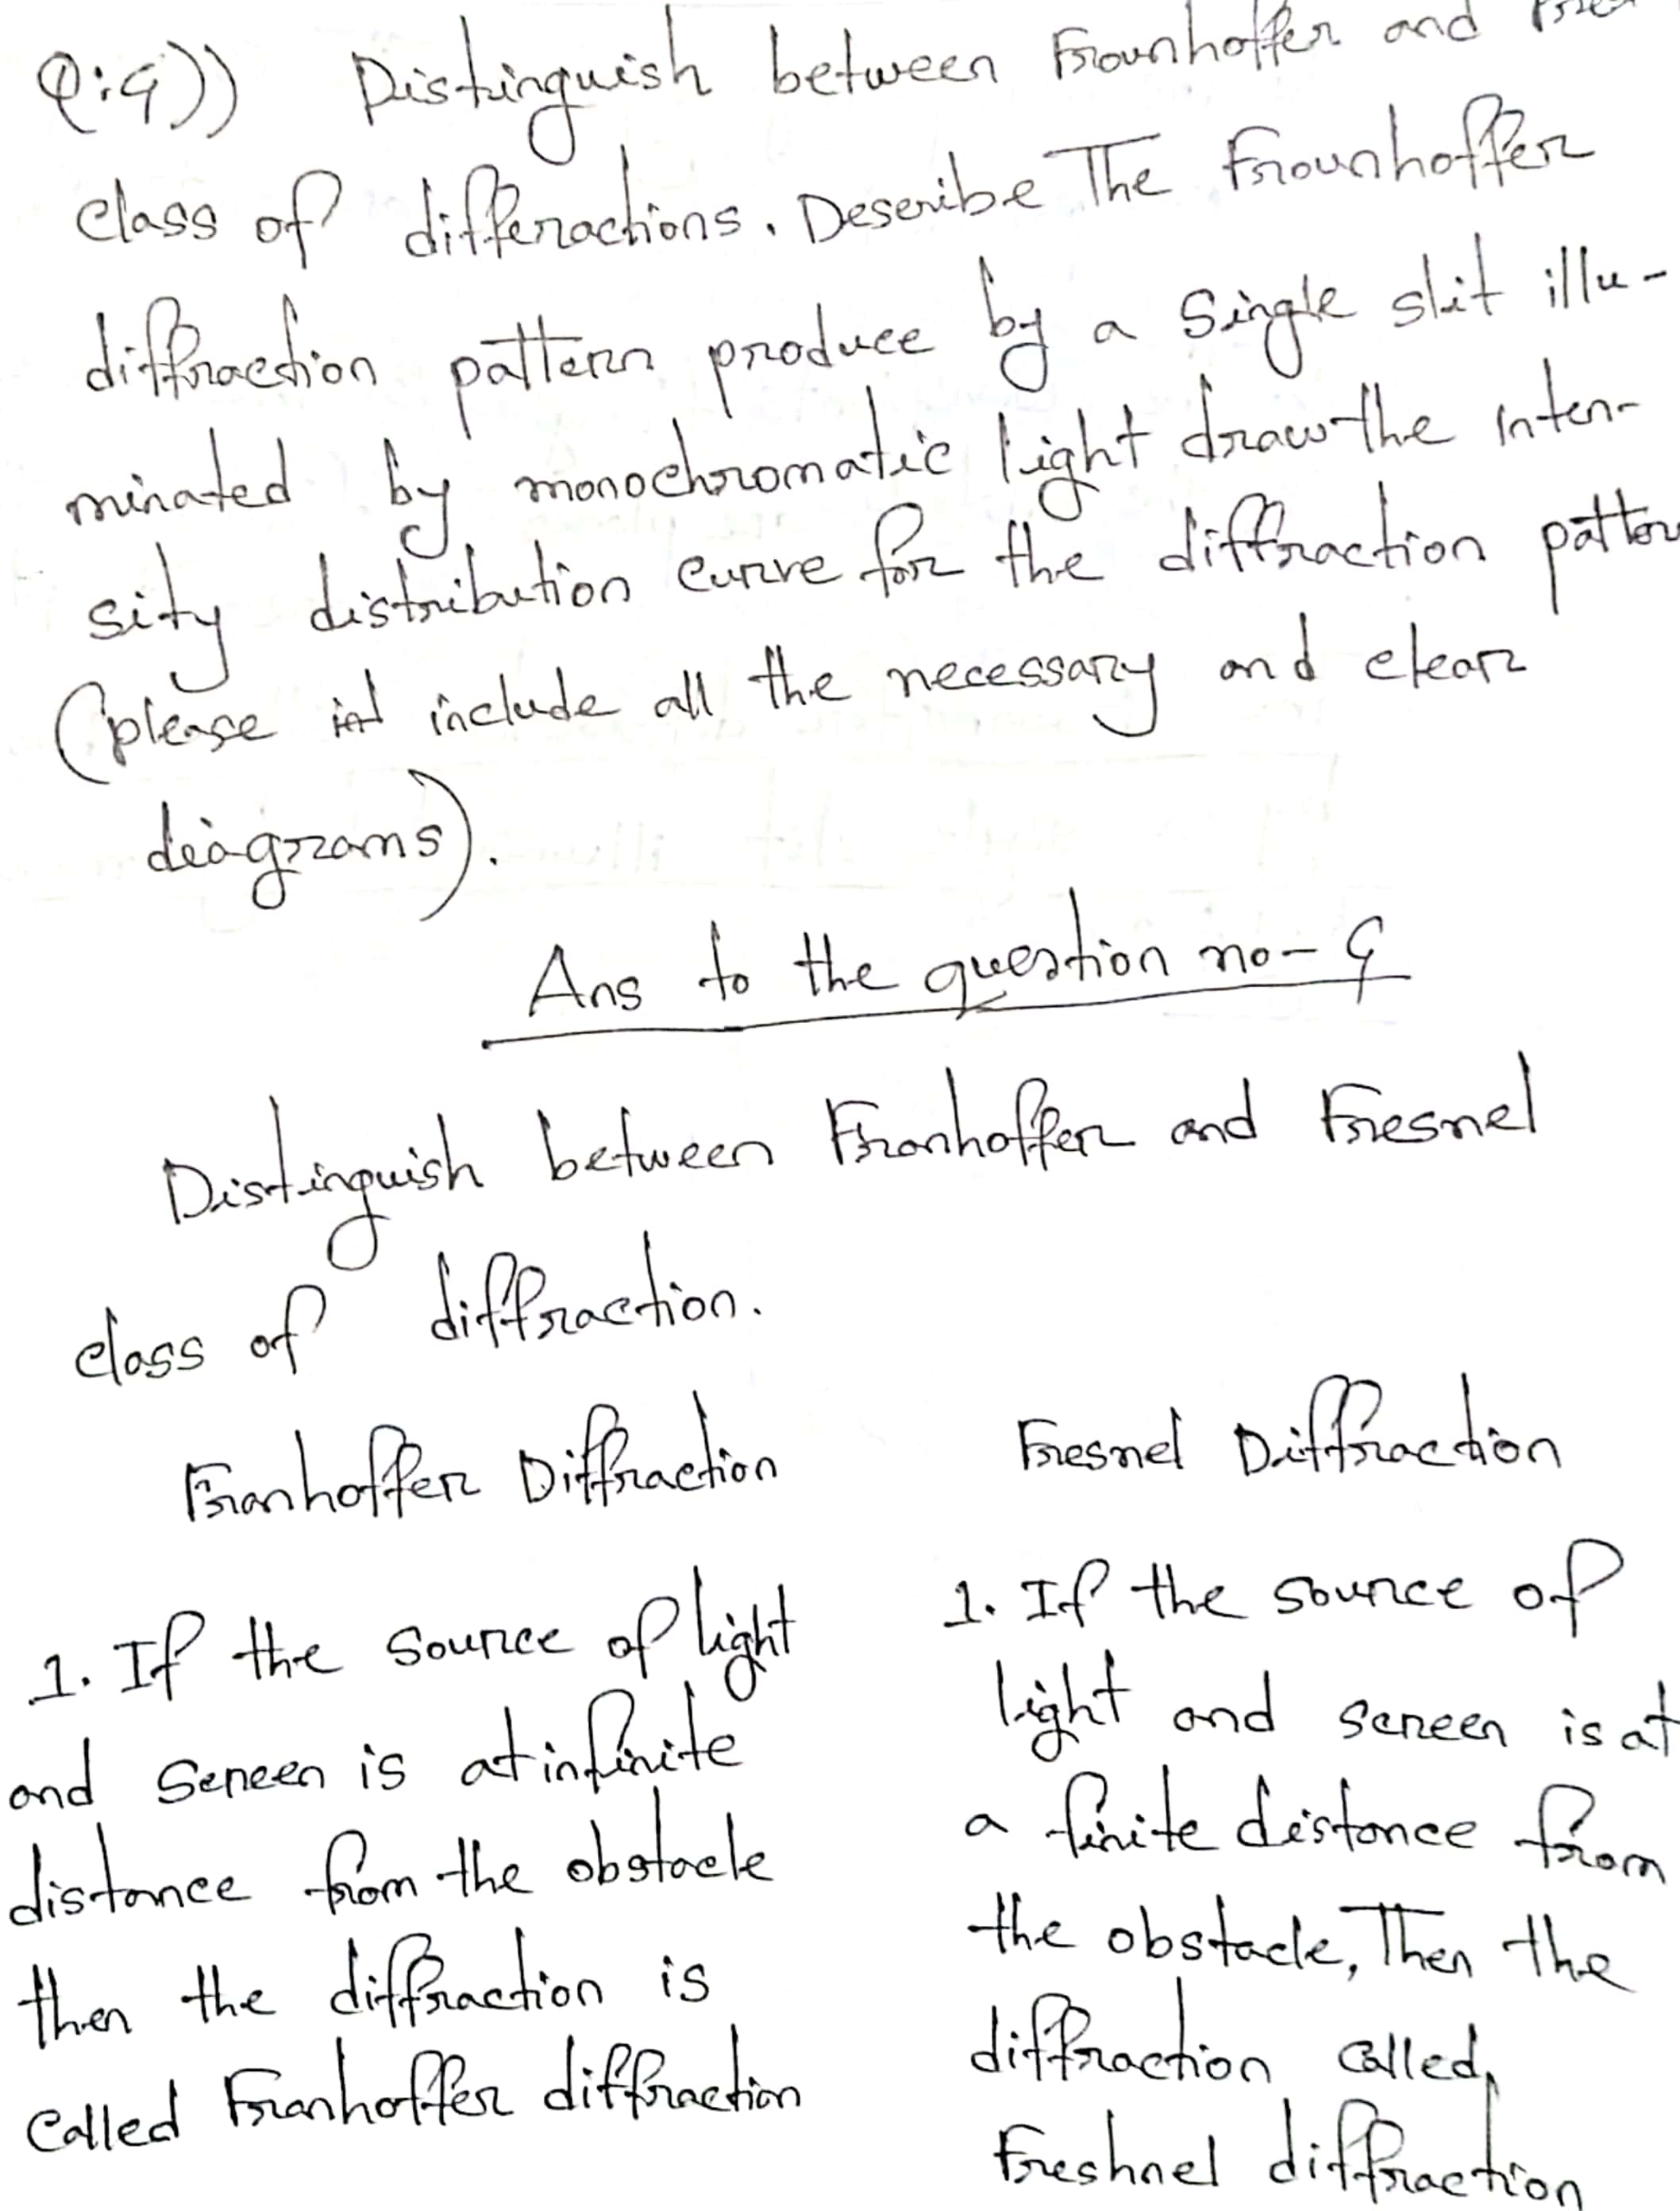 Q:4)) Distinguish between Frounhoffer and
class of differactions. Describe The Frounhoffer
diffraction pattern produce by a single slit illu-
minated by monochromatic light draw the inten-
sity distribution curve for the diffraction
(please include all the necessary and clear
diagrams).
Ans to the question no - 4
Distinguish between Franhoffer and Fresnel
class of diffraction.
Franhoffer Diffraction
1. If the source of light
and screen is at infinite
distance from the obstacle
then the diffraction is
called Franhoffer diffraction
Fresnel Diffraction
1. If the source of
light and screen is at
a finite distance from
the obstacle, Then the
diffraction called,
Freshnel diffraction